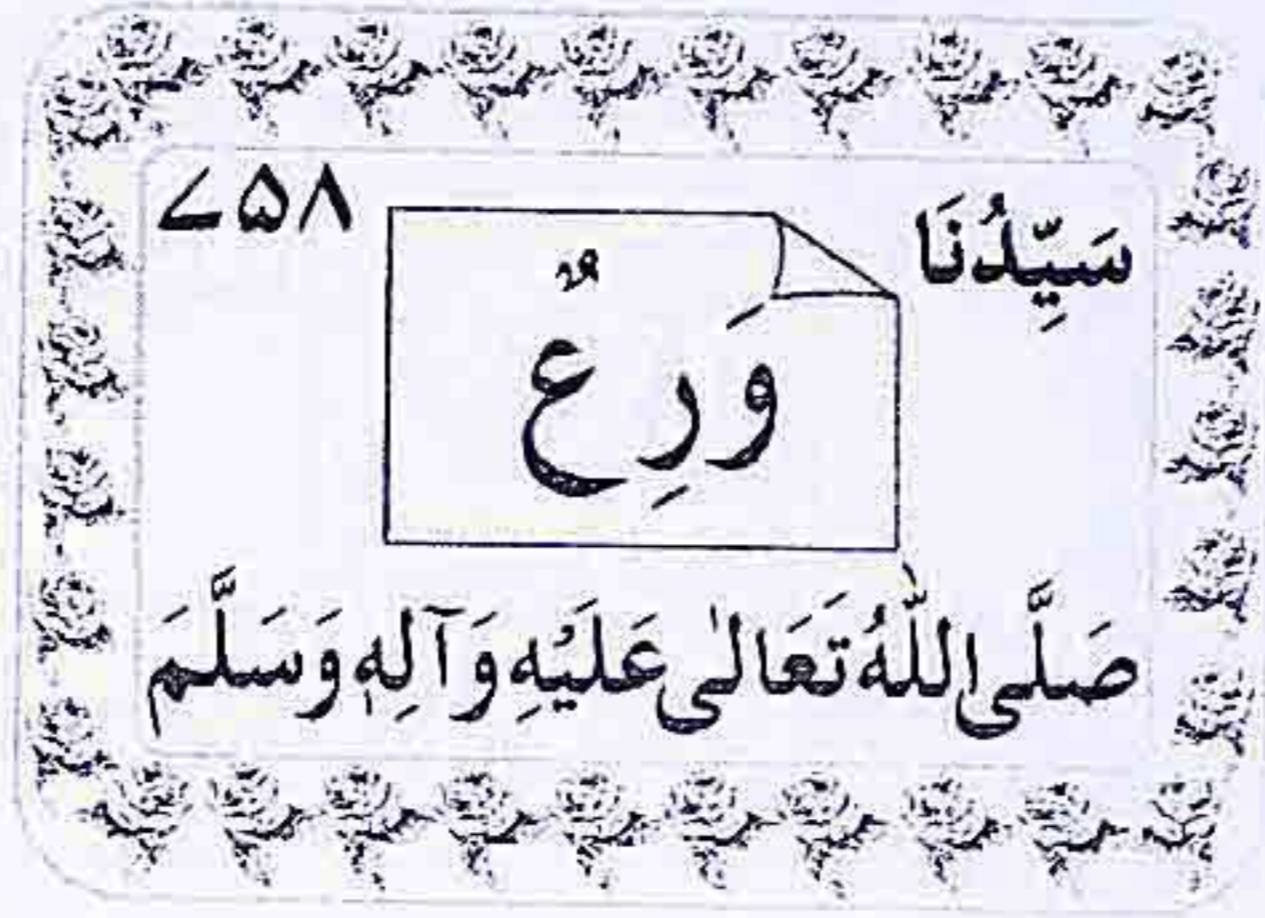 سَيِّدُنَا
۷۵۸
وَرِعٌ
صَلَّى اللّٰهُ تَعَالٰى عَلَيْهِ وَآلِهٖ وَسَلَّمَ